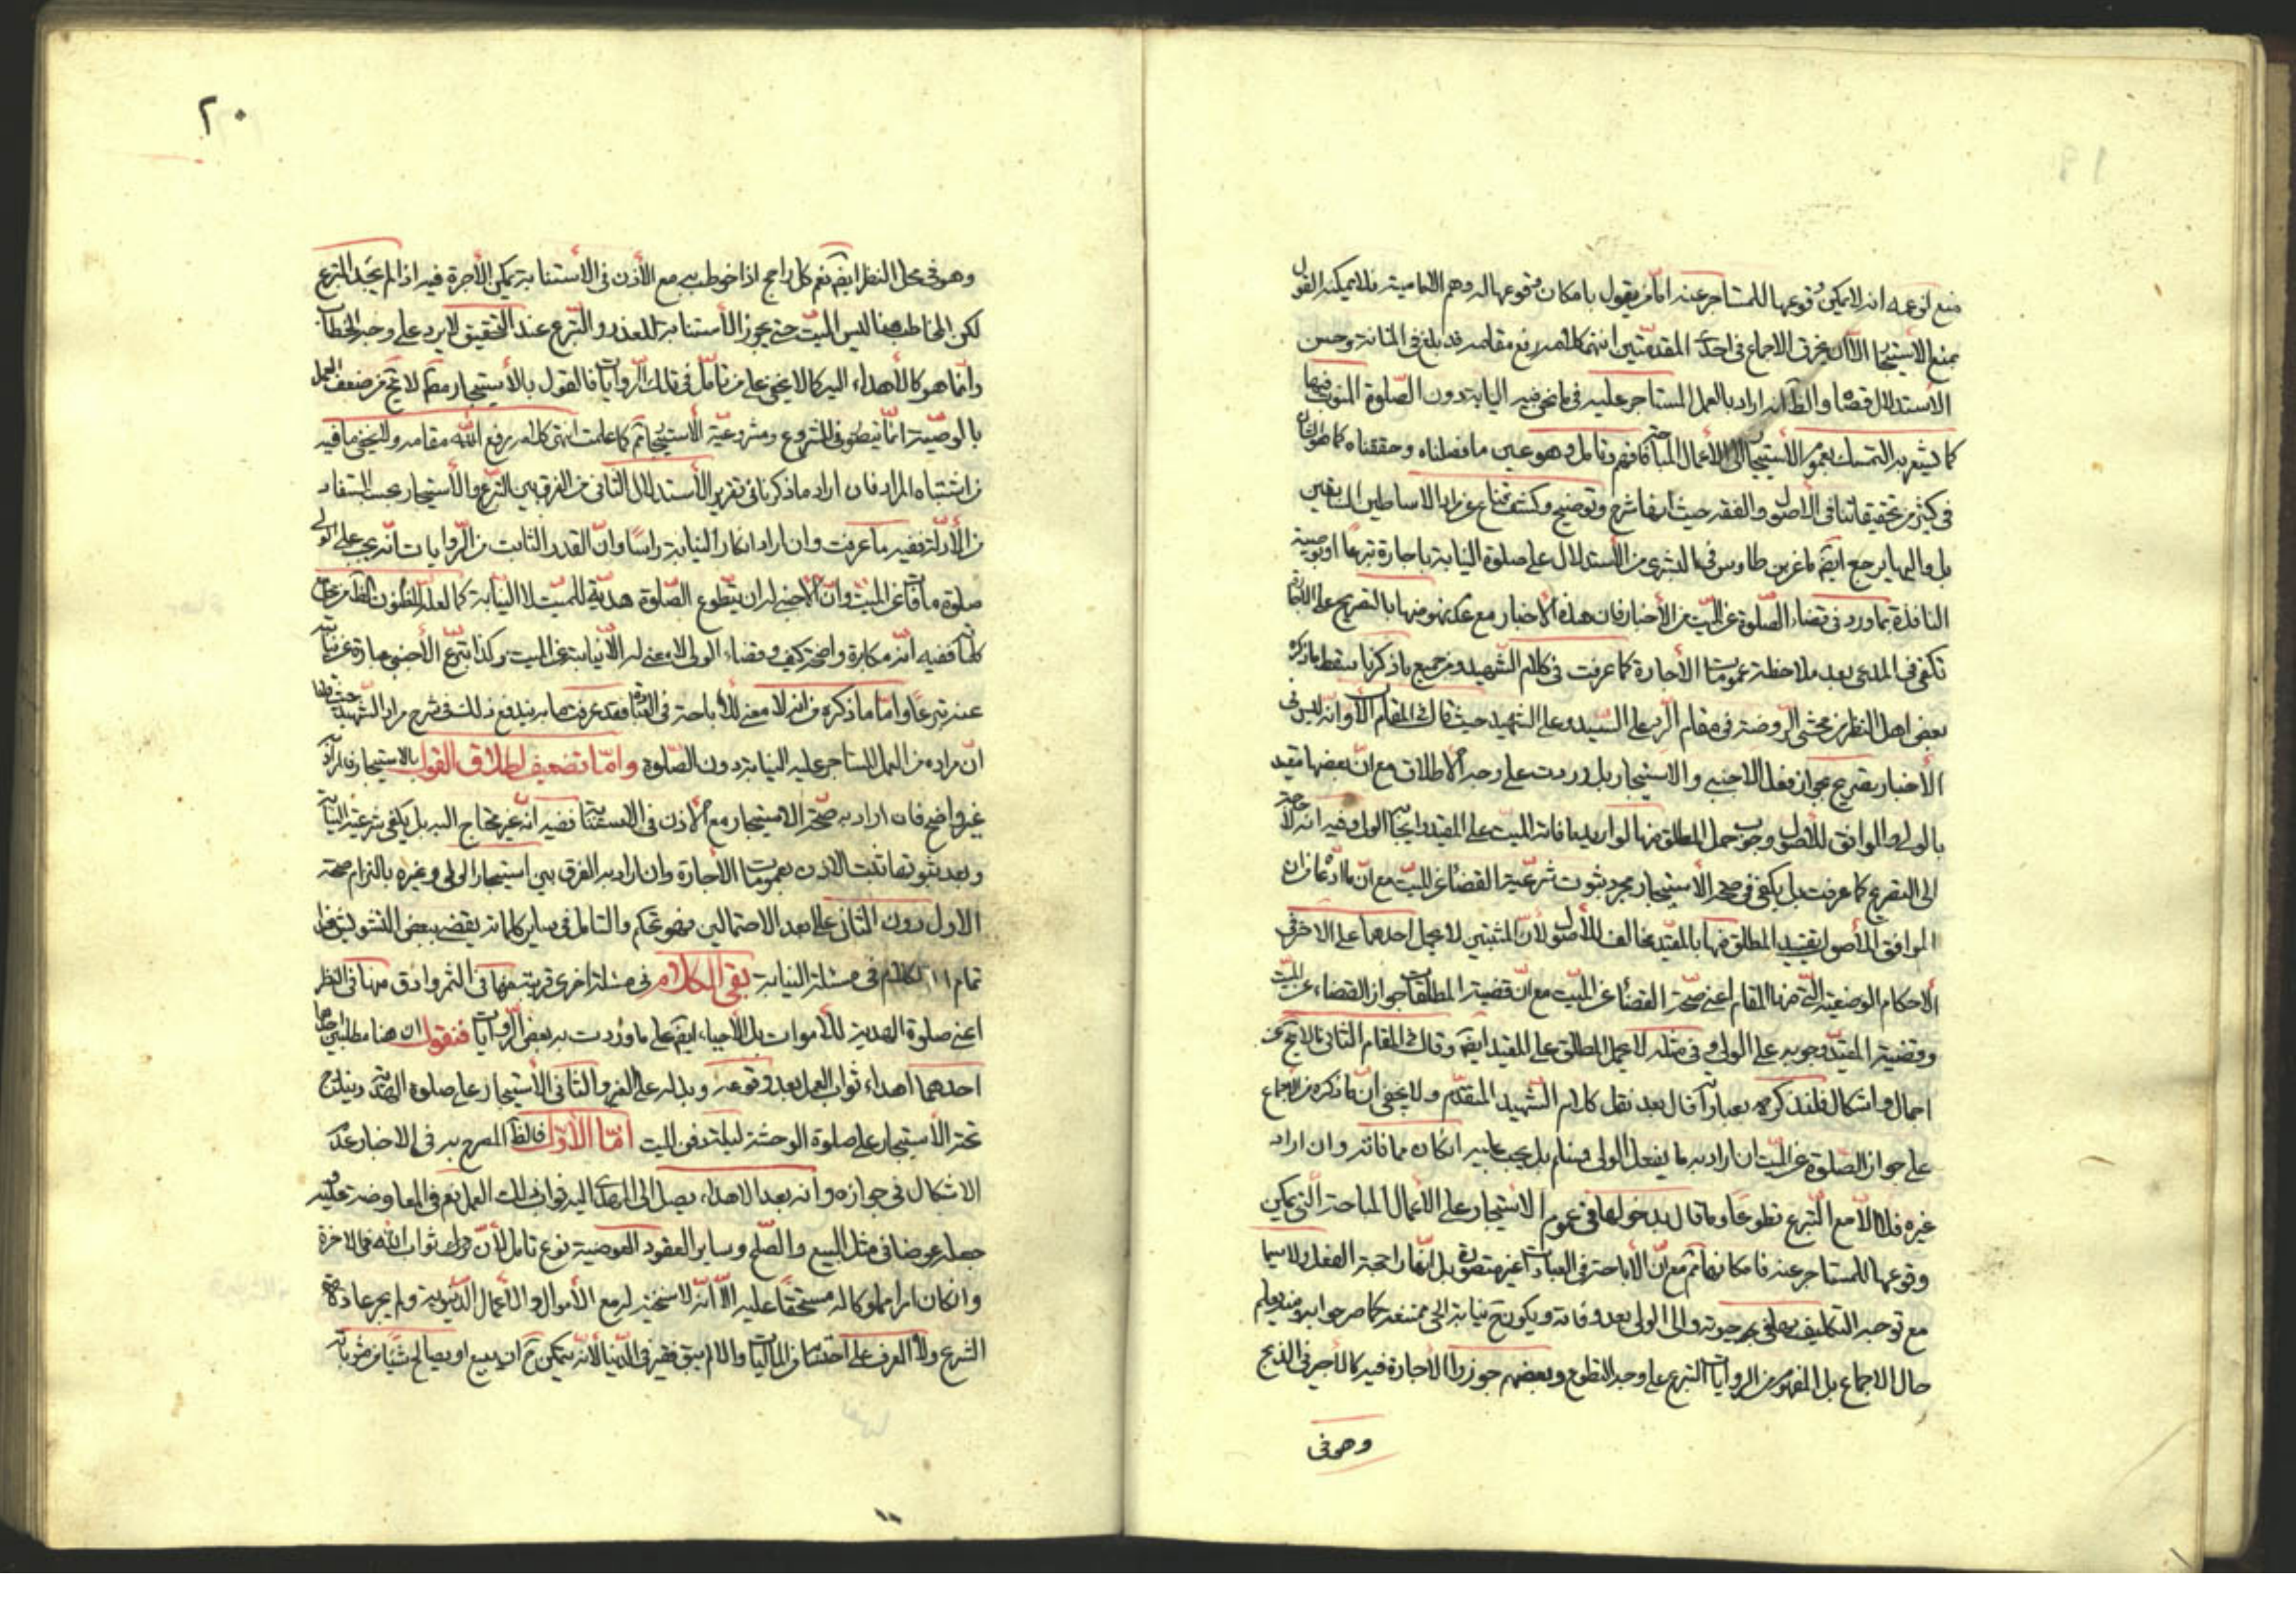 منع لزعمه انه لا يمكن وقوعها للمستاجر عنه امّا من يقول بامكان وقوعها له وهم الاماميته فلا يمكنه القول
بمنع الاستيجار الا ان يخرق الاجماع فى احدى المقدمتين انتهى كلامه رفع مقامه قد بلغ فى المتانة وحسن
الاستدلال اقصاها والظ انه اراد بالعمل المستاجر عليه فى ما نحن فيه النيابة دون الصّلوة المنوب فيها
كما يشعر به التمسك بعموم الاستيجار الاعمال المباحة فافهم وتامل وهو عين ما فصلناه وحققناه كما هو
فى كثير من تحقيقاتنا فى الاصول والفقه حيث انها شرح وتوضيح وكشف قناع عن مراد الاساطين السابقين
بل واليها يرجع ايضا ما عن بن طاوس فى البشرى من الاستدلال على صلوة النيابة باجارة تبرعا او بوصية
النافلة بما ورد فى قضاء الصّلوة عن الميّت من الأخبار فان هذه الاخبار مع عدم منها بالتصريح على
تكفى فى المدعى بعد ملاحظة عمومات الأجارة كما عرفت فى كلام الشهيد ومن جميع ما ذكرنا سقط ما ذكره
بعض اهل النظر من محشى الروضة فى مقام الرد على السّيد وعلى الشهيد حيث قال فى المقام الاول انه ليس فى
الأخبار تصريح بجواز فعل الاجنبى والاستيجار بل وردت على وجه الاطلاق مع ان بعضها مقيد
بالولى والموافق للاصول وجوب حمل المطلق منها الوارد بما فات الميّت على المقيد بايجاب الولى وفيه انه لا حاجة
الى التصريح كما عرفت بل يكفى فى صحة الأستيجار مجرد ثبوت شرعيّة القضاء عن الميّت مع ان ما ادعاه من ان
الموافق للأصول تقييد المطلق منها بالمقيّد مخالف للأصول لأن المثبتين لا يحمل احدهما على الاخر فى
الاحكام الوضعيّة التى منها المقام اعنى صحة القضاء عن الميّت مع انّ قضية المطلقات جواز القضاء عن الميّت
وقضية المقيّد وجوبه على الولى وفى مثله لا يحمل المطلق على المقيد ايضا وقال فى المقام الثانى ما لا يخ عن
اجمال واشكال فلنذكره بعباراته قال بعد نقل كلام الشهيد المتقدّم ولا يخفى انّ ما ذكره من الاجماع
على جواز الصّلوة عن الميّت ان اراد به ما يفعل الولى فمسلم بل يجب عليه ان كان مما فاته وان اراد
غيره فلا الا مع التبرع تطوعا وما قال بدخولها فى عموم الاستيجار على الاعمال المباحة التى يمكن
وقوعها للمستاجر عنه فامكانها ثم مع انّ الأباحة فى العبادات غير متصورة بل انها راجحة الفعل ولا سيما
مع توجه التكليف به على حيوته والى الولى بعد وفاته ويكون ح نيابة الحى ممتنعة كما صرحوا به
حال الاجماع بل المفهوم من الروايات التبرع على وجه التطوع وبعضهم جوزوا الأجارة فيه كالأجير فى الذبح
وهو فى
٢٠
وهو فى محل النظر ايضا نعم كل راجح اذا خوطب به مع الأذن فى الاستنابة يمكن الأجرة فيه اذا لم يجد المتبرع
لكن المخاطب هنا ليس الميّت حتى يجوز الأستنابة للعذر والتبرع عند التحقيق لا يرد على وجه الخطاب
وانما هو كالأهداء اليه كما لا يخفى على من تأمّل فى تلك الروايات فالقول بالأستيجار مط لا يخ من ضعف
بالوصيّة انّما يتصور فى المشروع ومشروعية الاستيجار ثم كما علمت انتهى كلامه رفع الله مقامه ولا يخفى ما فيه
من اشتباه المراد فان اراد ما ذكرنا فى تقرير الأستدلال الثانى من الفرق بين التبرع والأستيجار بحسب المستفاد
من الأدلة ففيه ما عرفت وان اراد انكار النيابة راسًا وانّ القدر الثابت من الرّوايات انه يجب على الولى
صلوة ما فات عن الميّت وان الاجنبى له ان يتطوع الصّلوة هديّة للميّت لا النّيابة كما لعلّه المظنون
ففيه انه مكابرة واضحة كيف وقضاء الولى لا معنى له الا نيابته عن الميت وكذا تبرّع الأجنبى عبارة عن نيابته
عنه تبرعًا وامّا ما ذكره من انه لا معنى للاباحة فى العبادة فقد عرفت ما به يندفع ذلك فى شرح مراد الشهيد حيث قلنا
انّ مراده من العمل المستاجر عليه النيابة دون الصّلوة وامّا تضعيف اطلاق القول بالاستيجار فمراده
غير واضح فان اراد به صحّة الاستيجار مع الأذن فى الاستنابة ففيه انه غير محتاج اليه بل يكفى شرعية النيابة
وبعد ثبوتها ثبت الاذن بعمومات الأجارة وان اراد به الفرق بين استيجار الولى وغيره بالتزام صحة
الاول دون الثانى على بعد الاحتمالين فهو تحكم والتامل فى ساير كلماته يقضى ببعض التشويش هذا
تمام الكلام فى مسئلة النيابة بقى الكلام فى مسئلة اخرى قريبة منها فى الثمر وادق منها فى النظر
اعنى صلوة الهدية للأموات بل الأحياء ايضا على ما وردت به بعض الرّوايات فنقول ان هنا مطلبين
احدهما اهداء ثواب العمل بعد وقوعه وبدله على الغير والثانى الأستيجار على صلوة الهدية ويندرج
تحته الأستيجار على صلوة الوحشة ليلة دفن الميت امّا الأوّل فالظ المصرح به فى الاخبار عدم
الاشكال فى جوازه وانه بعد الاهداء يصل الى المهدى اليه ثواب ذلك العمل نعم فى المعاوضة عليه
جعله عوضا فى مثل البيع والصّلح وساير العقود العوضية نوع تامل لأن ثواب الله فى الاخرة
وانكان امرا مملوكا له مستحقا عليه الّا انه لا سنخية له مع الأموال والأعمال الدّنيوية ولم يجر عادة
الشرع ولا العرف على احتسابها من الماليات والا لم يبق فقير فى الدّنيا لأنه يتمكن ح ان يبيع او يصالح شيئا من مثوباته